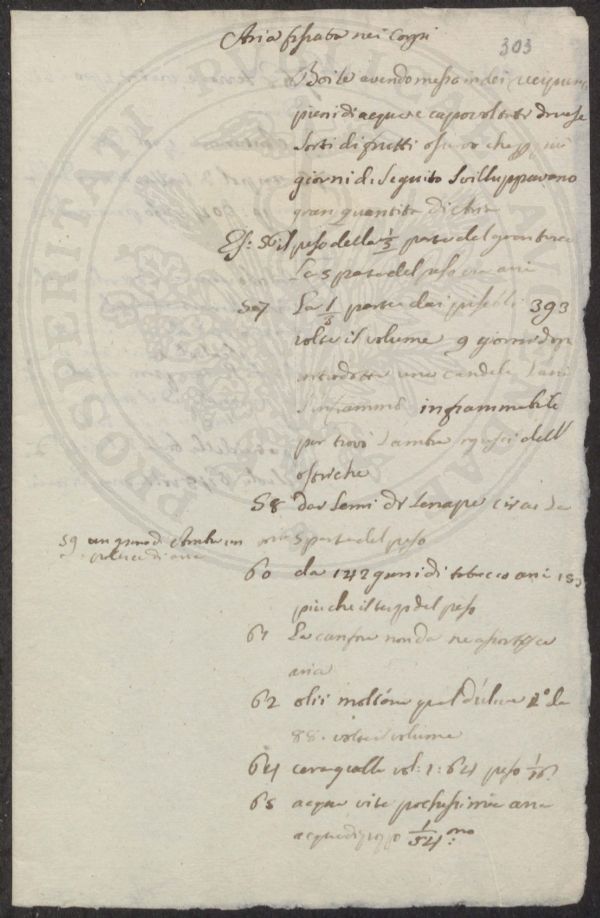 303
Aria fissata nei Corpi
Boile avendo messo in dei recipienti
pieni di acqua e capovoltati diverse
sorti di frutti osservò che per più
giorni di seguito sviluppavano
gran quantità di Aria
Es: 56 il peso della 1/3 parte del gran turco
la 5 parte del peso era aria
57 La 1/3 parte dai piselli 393
volte il volume 9 giorni dopo
introdotta una candela l'aria
s'infiammò infiammabile
per trovi l'ambra i gusci dell'
ostriche
58 dai semi di senape circa la
5 parte del peso
59 un grano d'Ambra un
pollice di aria
60 da 142 grani di tabacco aria 153
più che il terzo del peso
61 La canfora non dà ne assorbisce
aria
62 olii molt'aria quel d'uliva 1º da
88 volte il volume
64 cera gialla vol: 1: 64 peso 1/16
65 acqua vite pochissima aria
acqua di pozzo 1/54 mo
PROSPERITATI PUBLICAE AUGENDAE